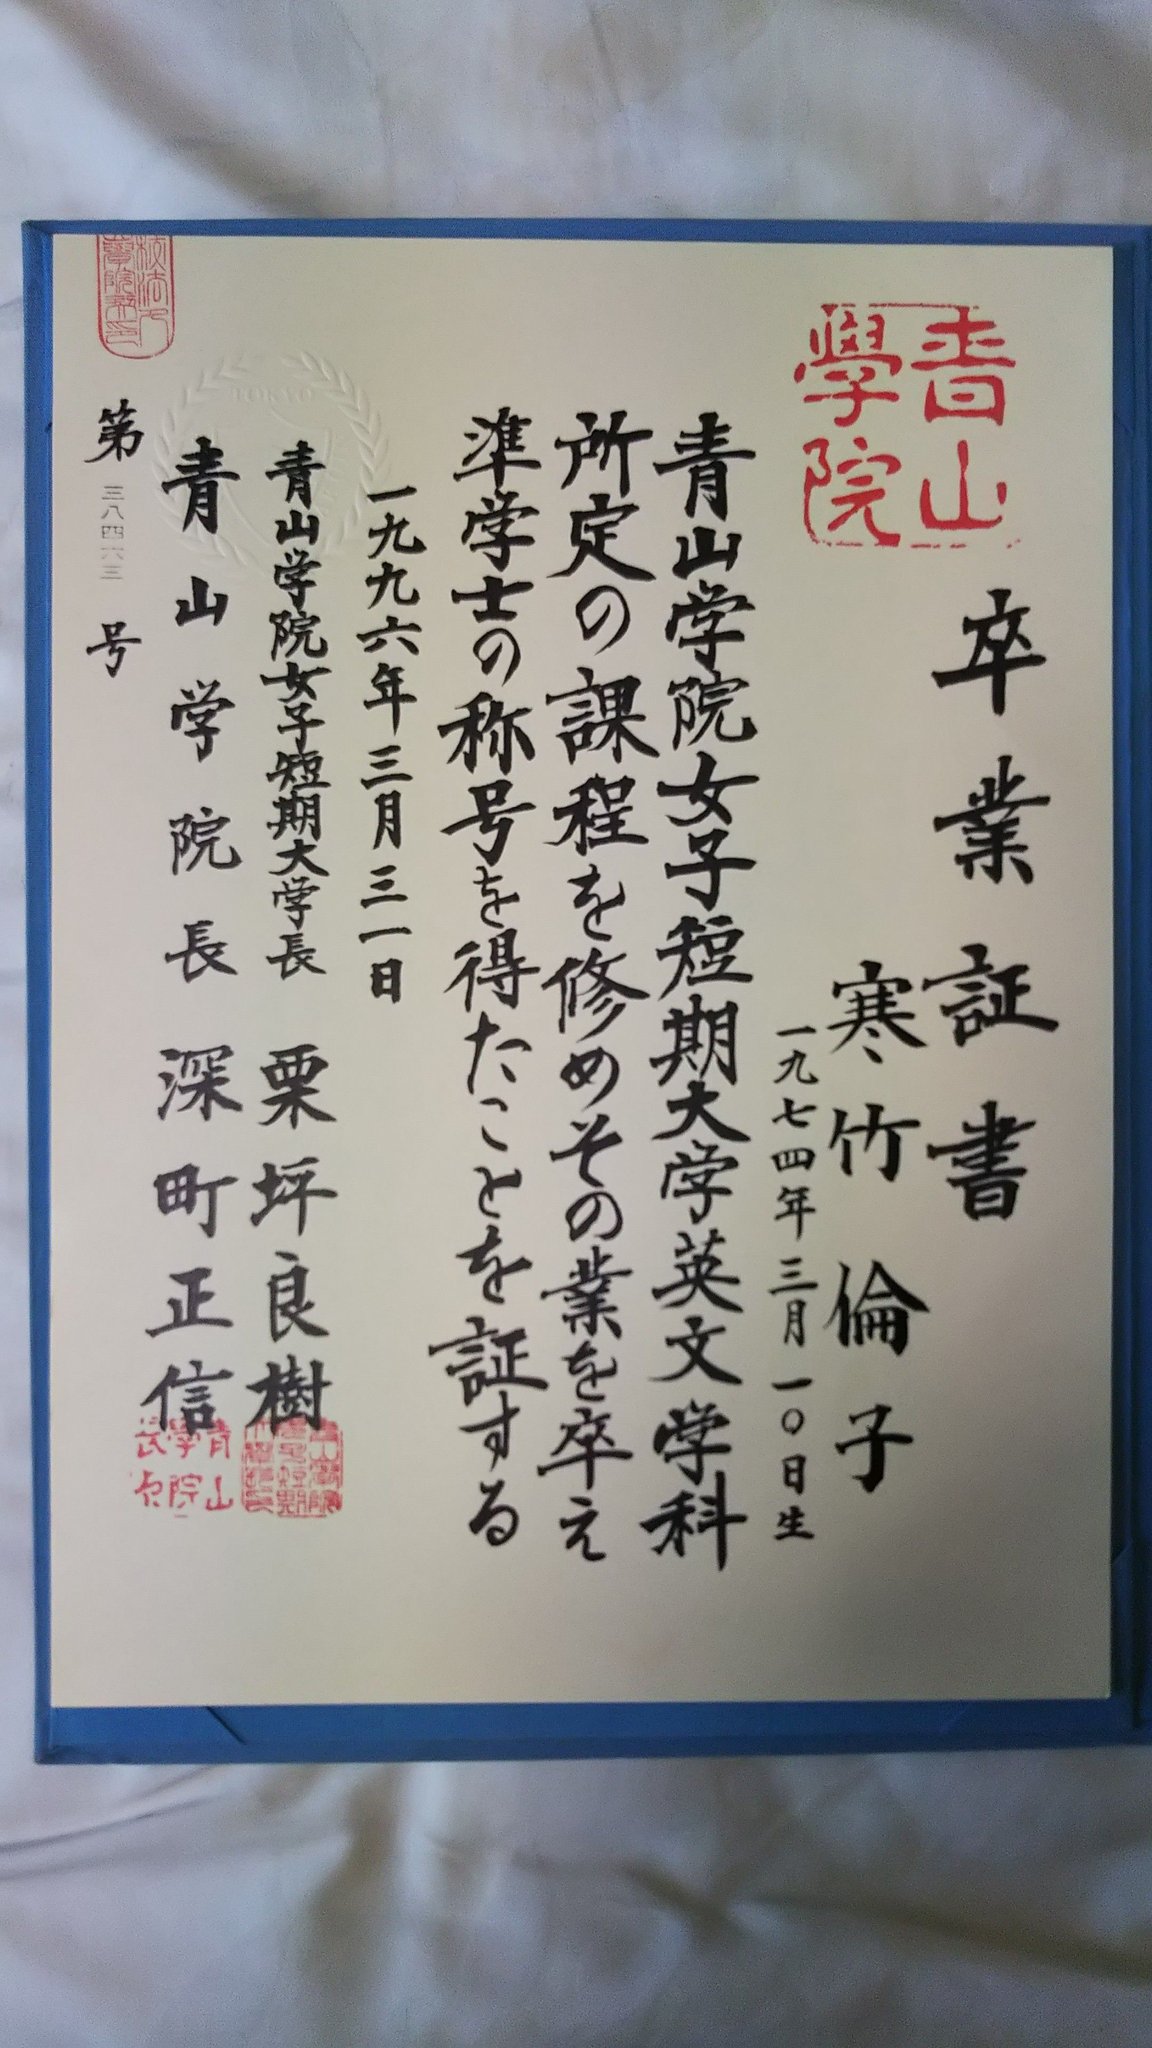 青山
學院
卒業証書
寒竹倫子
一九七四年三月一〇日生
青山学院女子短期大学英文学科
所定の課程を修めその業を卒え
準学士の称号を得たことを証する
一九九六年三月三一日
青山学院女子短期大学長 栗坪良樹
青山学院長 深町正信
青山
學院
長印
第三八四六三号
TOKYO